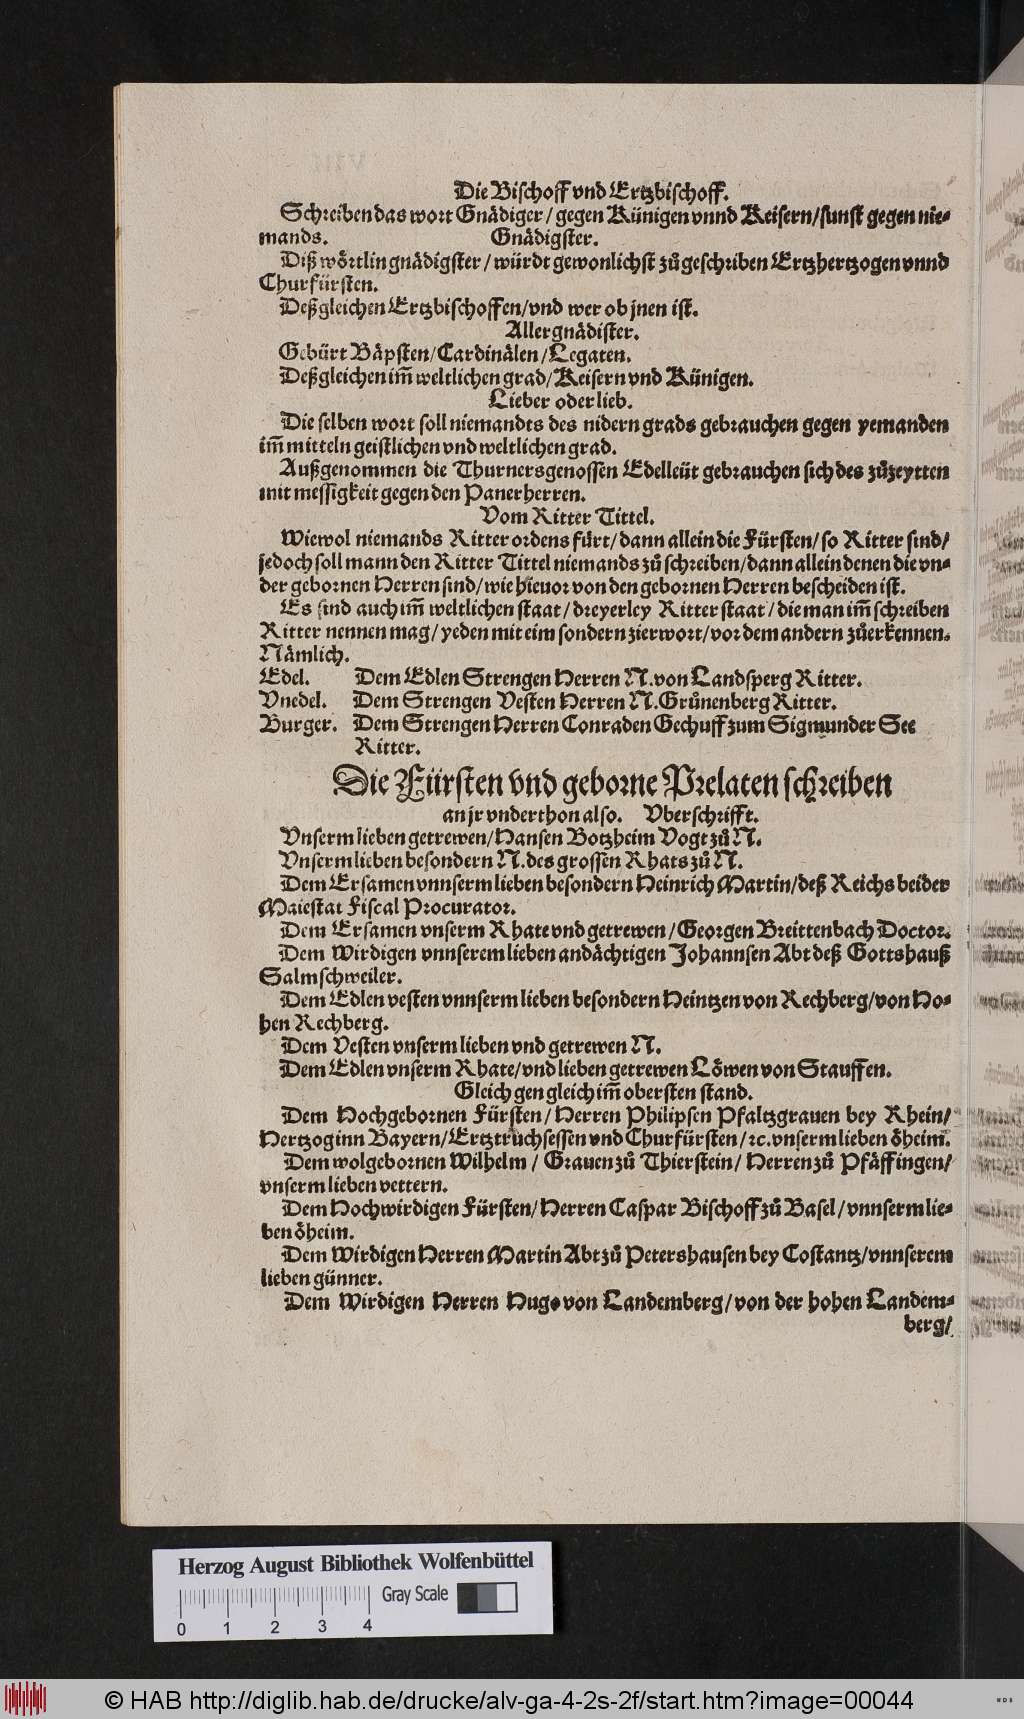 Die Bischoff vnd Ertzbischoff.
Schreiben das wort Gnädiger / gegen Künigen vnnd Keisern/sunst gegen nie-
mands. Gnädigster.
Diß wörtlin gnädigster / würdt gewonlichst zůgeschriben Ertzhertzogen vnnd
Churfürsten.
Deßgleichen Ertzbischoffen/vnd wer ob jnen ist.
Allergnädister.
Gebürt Bäpsten/Cardinälen/Legaten.
Deßgleichen im̃ weltlichen grad/Keisern vnd Künigen.
Lieber oder lieb.
Die selben wort soll niemandts des nidern grads gebrauchen gegen yemanden
im̃ mitteln geistlichen vnd weltlichen grad.
Außgenommen die Thurnersgenossen Edelleüt gebrauchen sich des zůzeytten
mit messigkeit gegen den Panerherren.
Vom Ritter Tittel.
Wiewol niemands Ritter ordens fürt/dann allein die Fürsten/so Ritter sind/
jedoch soll mann den Ritter Tittel niemands zů schreiben/dann allein denen die vn-
der gebornen Herren sind/wie hieuor von den gebornen Herren bescheiden ist.
Es sind auch im̃ weltlichen staat/dreyerley Ritter staat/die man im̃ schreiben
Ritter nennen mag/yeden mit eim sondern zierwort/vor dem andern zůerkennen.
Nämlich.
Edel. Dem Edlen Strengen Herren N. von Landsperg Ritter.
Vnedel. Dem Strengen Vesten Herren N. Grůnenberg Ritter.
Burger. Dem Strengen Herren Conraden Gechuff zum Sigmunder See
Ritter.
Die Fürsten vnd geborne Prelaten schreiben
an jr vnderthon also. Vberschrifft.
Vnserm lieben getrewen/Hansen Botzheim Vogt zů N.
Vnserm lieben besondern N. des grossen Rhats zů N.
Dem Ersamen vnnserm lieben besondern Heinrich Martin/deß Reichs beider
Maiestat Fiscal Procurator.
Dem Ersamen vnserm Rhate vnd getrewen/Georgen Breittenbach Doctor.
Dem Wirdigen vnnserem lieben andächtigen Johannsen Abt deß Gottshauß
Salmschweiler.
Dem Edlen vesten vnnserm lieben besondern Heintzen von Rechberg/von Ho-
hen Rechberg.
Dem Vesten vnserm lieben vnd getrewen N.
Dem Edlen vnserm Rhate/vnd lieben getrewen Löwen von Stauffen.
Gleich gen gleich im̃ obersten stand.
Dem Hochgebornen Fürsten/Herren Philipsen Pfaltzgrauen bey Rhein/
Hertzog inn Bayern/Ertztruchsessen vnd Churfürsten/ꝛc. vnserm lieben öheim.
Dem wolgebornen Wilhelm / Grauen zů Thierstein/Herren zů Pfäffingen/
vnserm lieben vettern.
Dem Hochwirdigen Fürsten/Herren Caspar Bischoff zů Basel/vnnserm lie-
ben öheim.
Dem Wirdigen Herren Martin Abt zů Petershausen bey Costantz/vnnserem
lieben günner.
Dem Wirdigen Herren Hugo von Landemberg/von der hohen Landem-
berg/
Herzog August Bibliothek Wolfenbüttel
Gray Scale
0 1 2 3 4
© HAB http://diglib.hab.de/drucke/alv-ga-4-2s-2f/start.htm?image=00044